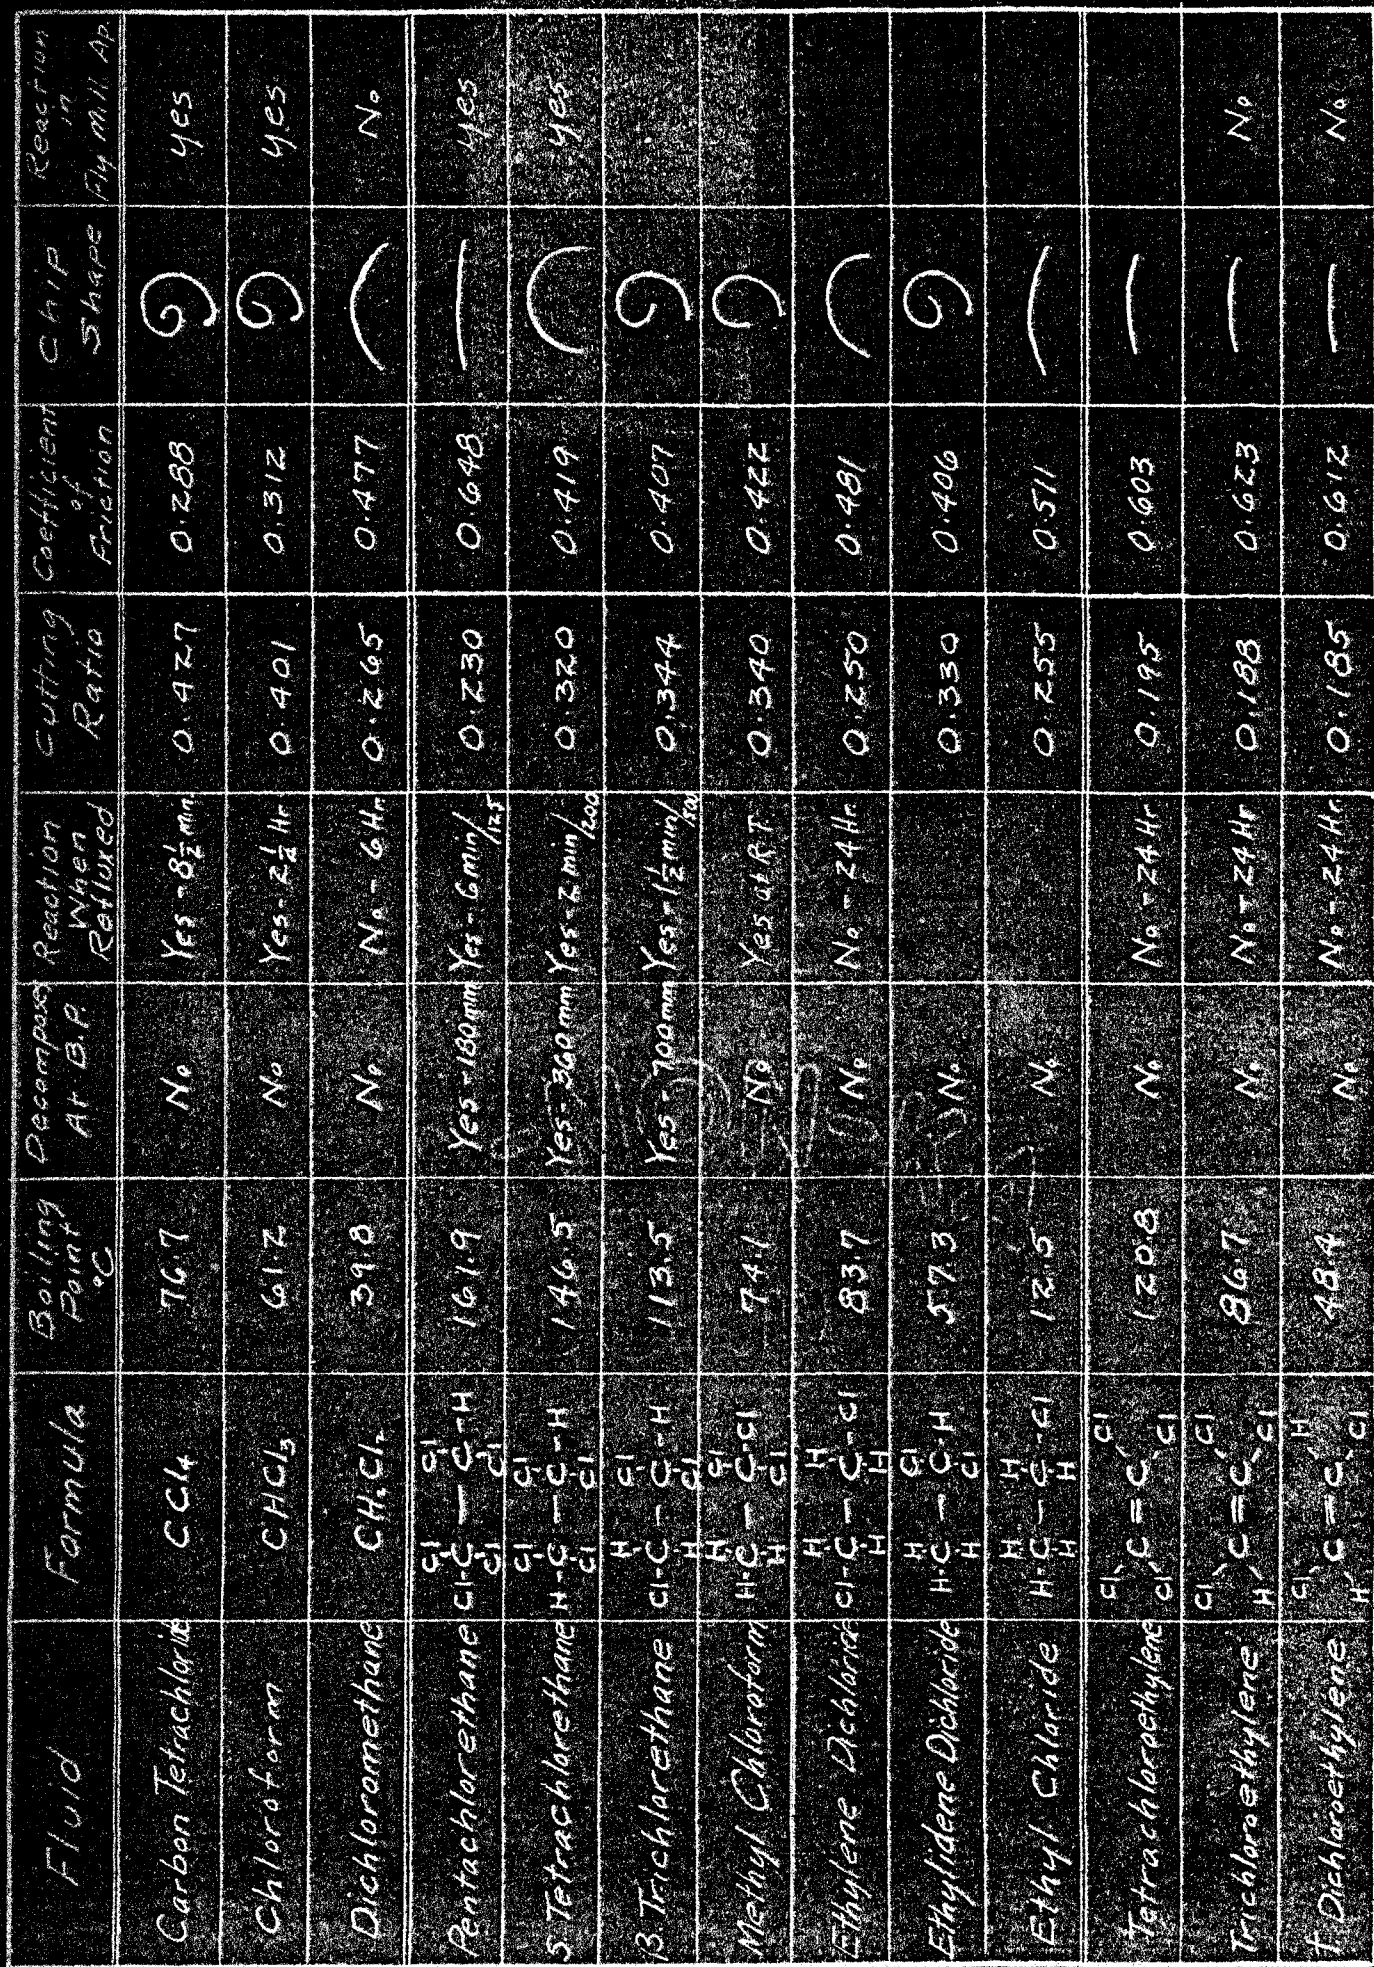 Fluid Formula Boiling Point °C Decomposes At B.P. Reaction When Refluxed Cutting Ratio Coefficient of Friction Chip Shape Reaction in Fly Mill. Ap.
Carbon Tetrachloride CCl4 76.7 No Yes-8½ min. 0.427 0.288 yes
Chloroform CHCl3 61.2 No Yes-2½ Hr 0.401 0.312 yes
Dichloromethane CH2Cl2 39.8 No No-6Hr 0.265 0.477 No
Cl Cl
Pentachlorethane Cl-C—C-H 161.9 Yes-180mm Yes-6min/125 0.230 0.648 yes
Cl Cl
Cl Cl
S Tetrachlorethane H-C—C-H 146.5 Yes-360mm Yes-2min/200 0.320 0.419 yes
Cl Cl
H Cl
B. Trichlorethane Cl-C—C-H 113.5 Yes-700mm Yes-1½min/500 0.344 0.407
H Cl
H Cl
Methyl Chloroform H-C—C-Cl 74.1 No Yes at R T 0.340 0.422
H Cl
H H
Ethylene Dichloride Cl-C—C-Cl 83.7 No No-24Hr. 0.250 0.481
H H
H Cl
Ethylidene Dichloride H-C—C-H 57.3 No 0.330 0.406
H Cl
H H
Ethyl Chloride H-C—C-Cl 12.5 No 0.255 0.511
H H
Cl Cl
Tetrachloroethylene C=C 120.8 No No-24Hr 0.195 0.603
Cl Cl
Cl Cl
Trichloroethylene C=C 86.7 No No-24Hr 0.188 0.623 No
H Cl
Cl H
t Dichloroethylene C=C 48.4 No No-24Hr. 0.185 0.612 No
H Cl